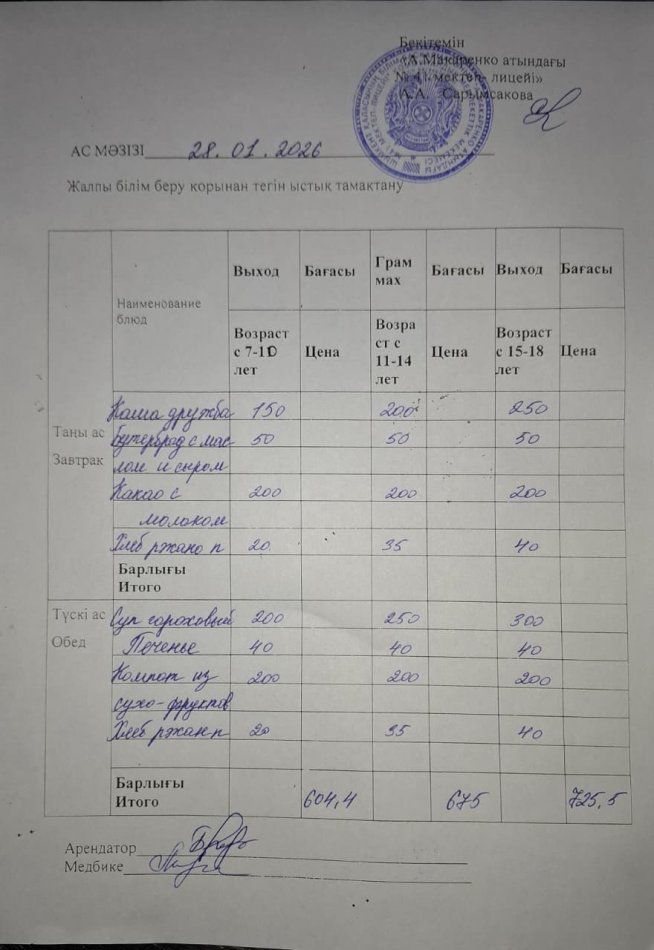 Бекітемін
«А.Макаренко атындағы
№ 41 мектеп- лицейі»
А.А. Сарымсакова
АС МӘЗІЗІ 28.01.2026
Жалпы білім беру қорынан тегін ыстық тамақтану
Наименование блюд Выход Бағасы Грам мах Бағасы Выход Бағасы
Возраст с 7-10 лет Цена Возра ст с 11-14 лет Цена Возраст с 15-18 лет Цена
Таңы ас
Завтрак
Каша дружба 150 200 250
Бутерброд с мас 50 50 50
лом и сыром
Какао с 200 200 200
молоком
Хлеб ржано п 20 35 40
Барлығы
Итого
Түскі ас
Обед
Суп гороховый 200 250 300
Печенье 40 40 40
Компот из 200 200 200
сухо-фруктов
Хлеб ржан п 20 35 40
Барлығы
Итого 604,4 675 725,5
Арендатор
Медбике